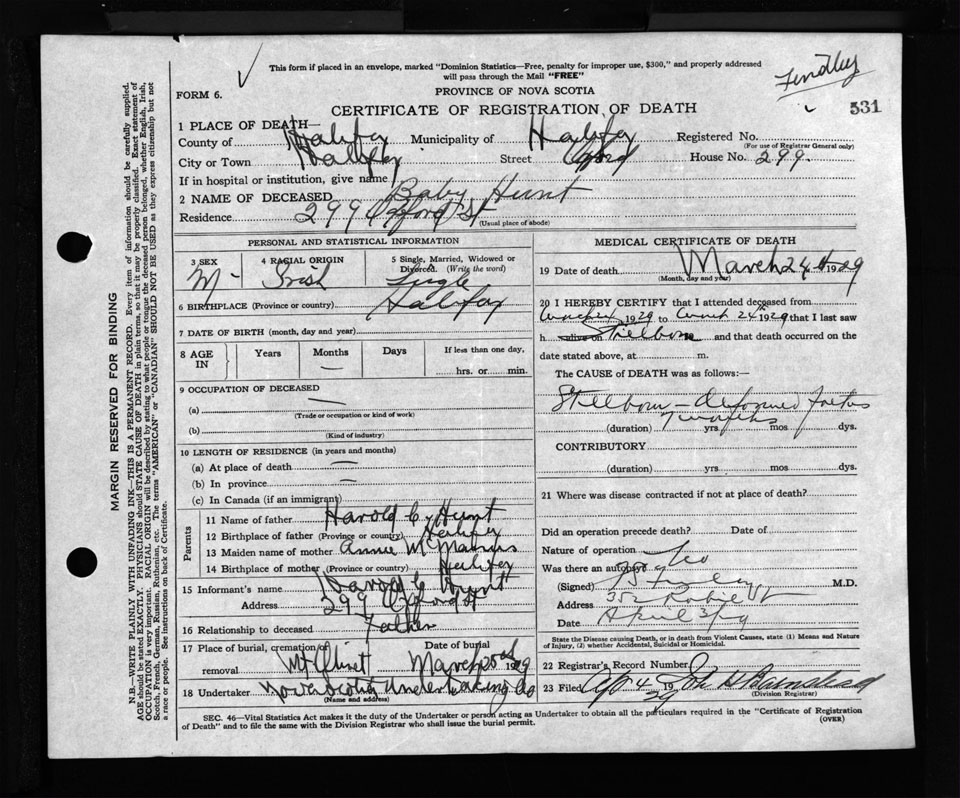 This form if placed in an envelope, marked "Dominion Statistics—Free, penalty for improper use, $300," and properly addressed
will pass through the Mail "FREE"
Findley
FORM 6.
PROVINCE OF NOVA SCOTIA
CERTIFICATE OF REGISTRATION OF DEATH
531
1 PLACE OF DEATH—
County of Halifax Municipality of Halifax Registered No.
(For use of Registrar General only)
City or Town Halifax Street Oxford House No. 299.
If in hospital or institution, give name
2 NAME OF DECEASED Baby Hunt
Residence 299 Oxford St
(Usual place of abode)
PERSONAL AND STATISTICAL INFORMATION
3 SEX 4 RACIAL ORIGIN 5 Single, Married, Widowed or
Divorced. (Write the word)
M - Irish Single
6 BIRTHPLACE (Province or country) Halifax
7 DATE OF BIRTH (month, day and year)
8 AGE IN Years Months Days If less than one day,
— hrs. or min.
9 OCCUPATION OF DECEASED
(a) —
(Trade or occupation or kind of work)
(b)
(Kind of industry)
10 LENGTH OF RESIDENCE (in years and months)
(a) At place of death —
(b) In province —
(c) In Canada (if an immigrant)
Parents
11 Name of father Harold C. Hunt
12 Birthplace of father (Province or country) Halifax
13 Maiden name of mother Annie McManus
14 Birthplace of mother (Province or country) Halifax
15 Informant's name Harold C Hunt
Address 299 Oxford St
16 Relationship to deceased Father
17 Place of burial, cremation or removal Mt Olivet Date of burial March 1929
18 Undertaker Nova Scotia Undertaking Co
(Name and address)
MEDICAL CERTIFICATE OF DEATH
19 Date of death March 24th 1929
(Month, day and year)
20 I HEREBY CERTIFY that I attended deceased from
1929 to March 24th 1929 that I last saw
h alive on Stillborn and that death occurred on the
date stated above, at m.
The CAUSE of DEATH was as follows:—
Stillborn – deformed foetus
7 months
(duration) yrs mos dys.
CONTRIBUTORY
(duration) yrs mos dys.
21 Where was disease contracted if not at place of death?
Did an operation precede death? Date of
Nature of operation
Was there an autopsy? No
(Signed) M.D.
Address Robie St
Date April 3/29
State the Disease causing Death, or in death from Violent Causes, state (1) Means and Nature
of Injury, (2) whether Accidental, Suicidal or Homicidal.
22 Registrar's Record Number
23 Filed Apr 4 1929 John H Barnstead
(Division Registrar)
SEC. 46—Vital Statistics Act makes it the duty of the Undertaker or person acting as Undertaker to obtain all the particulars required in the "Certificate of Registration
of Death" and to file the same with the Division Registrar who shall issue the burial permit.
(OVER)
MARGIN RESERVED FOR BINDING
N.B.—WRITE PLAINLY WITH UNFADING INK—THIS IS A PERMANENT RECORD. Every item of information should be carefully supplied.
AGE should be stated EXACTLY. PHYSICIANS should STATE CAUSE OF DEATH in plain terms, so that it may be properly classified. Exact statement of
OCCUPATION is very important. RACIAL ORIGIN will be described by stating to what people or tongue the deceased person belonged, whether English, Irish,
Scotch, French, German, Russian, Ruthenian, etc. The terms "AMERICAN" or "CANADIAN" SHOULD NOT BE USED as they express citizenship but not
a race or people. See instructions on back of Certificate.